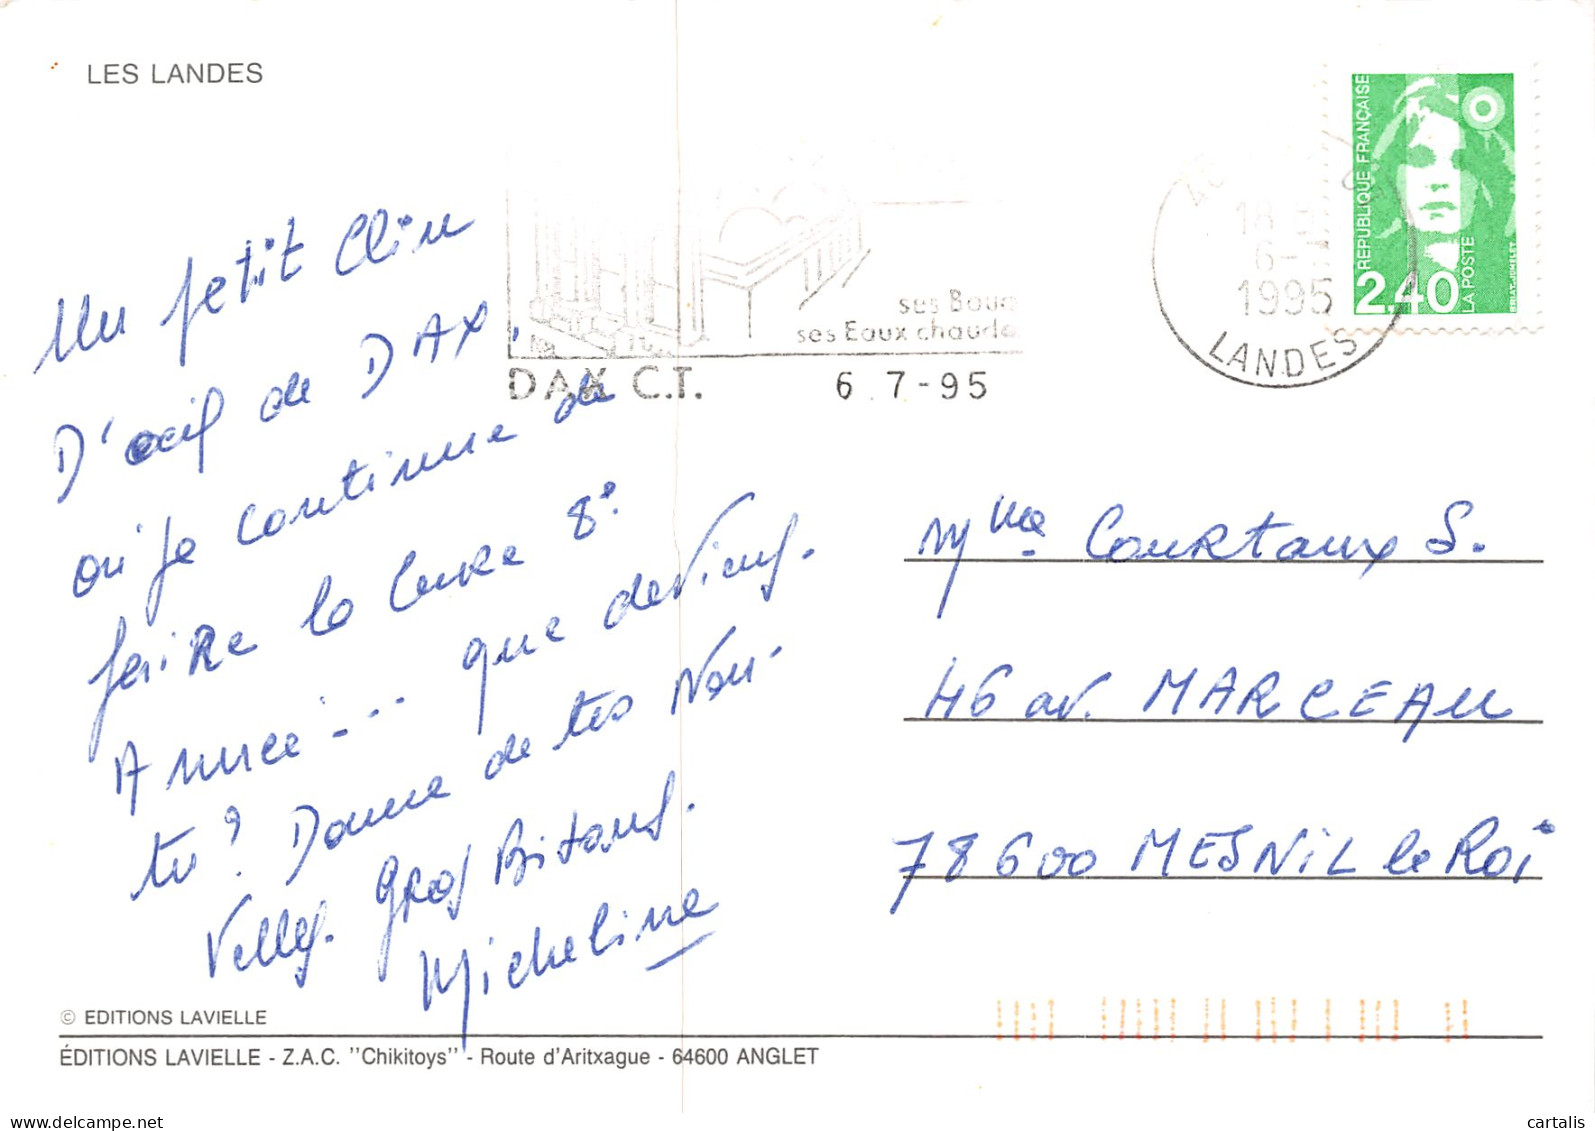 LES LANDES
REPUBLIQUE FRANÇAISE
2,40
LA POSTE
18 H
6-7
1995
LANDES
ses Boue
ses Eaux chaude
DAX C.T. 6 7-95
Un petit Clin
D'œil de DAX,
où je continue de
faire la Cure 8°
Année... que deviens.
tu? Donne de tes Nou-
velles. Gros Bisous.
Micheline
Mme Courtaux S.
46 av. MARCEAU
78600 MESNIL le Roi
© EDITIONS LAVIELLE
ÉDITIONS LAVIELLE - Z.A.C. "Chikitoys" - Route d'Aritxague - 64600 ANGLET
www.delcampe.net
cartalis